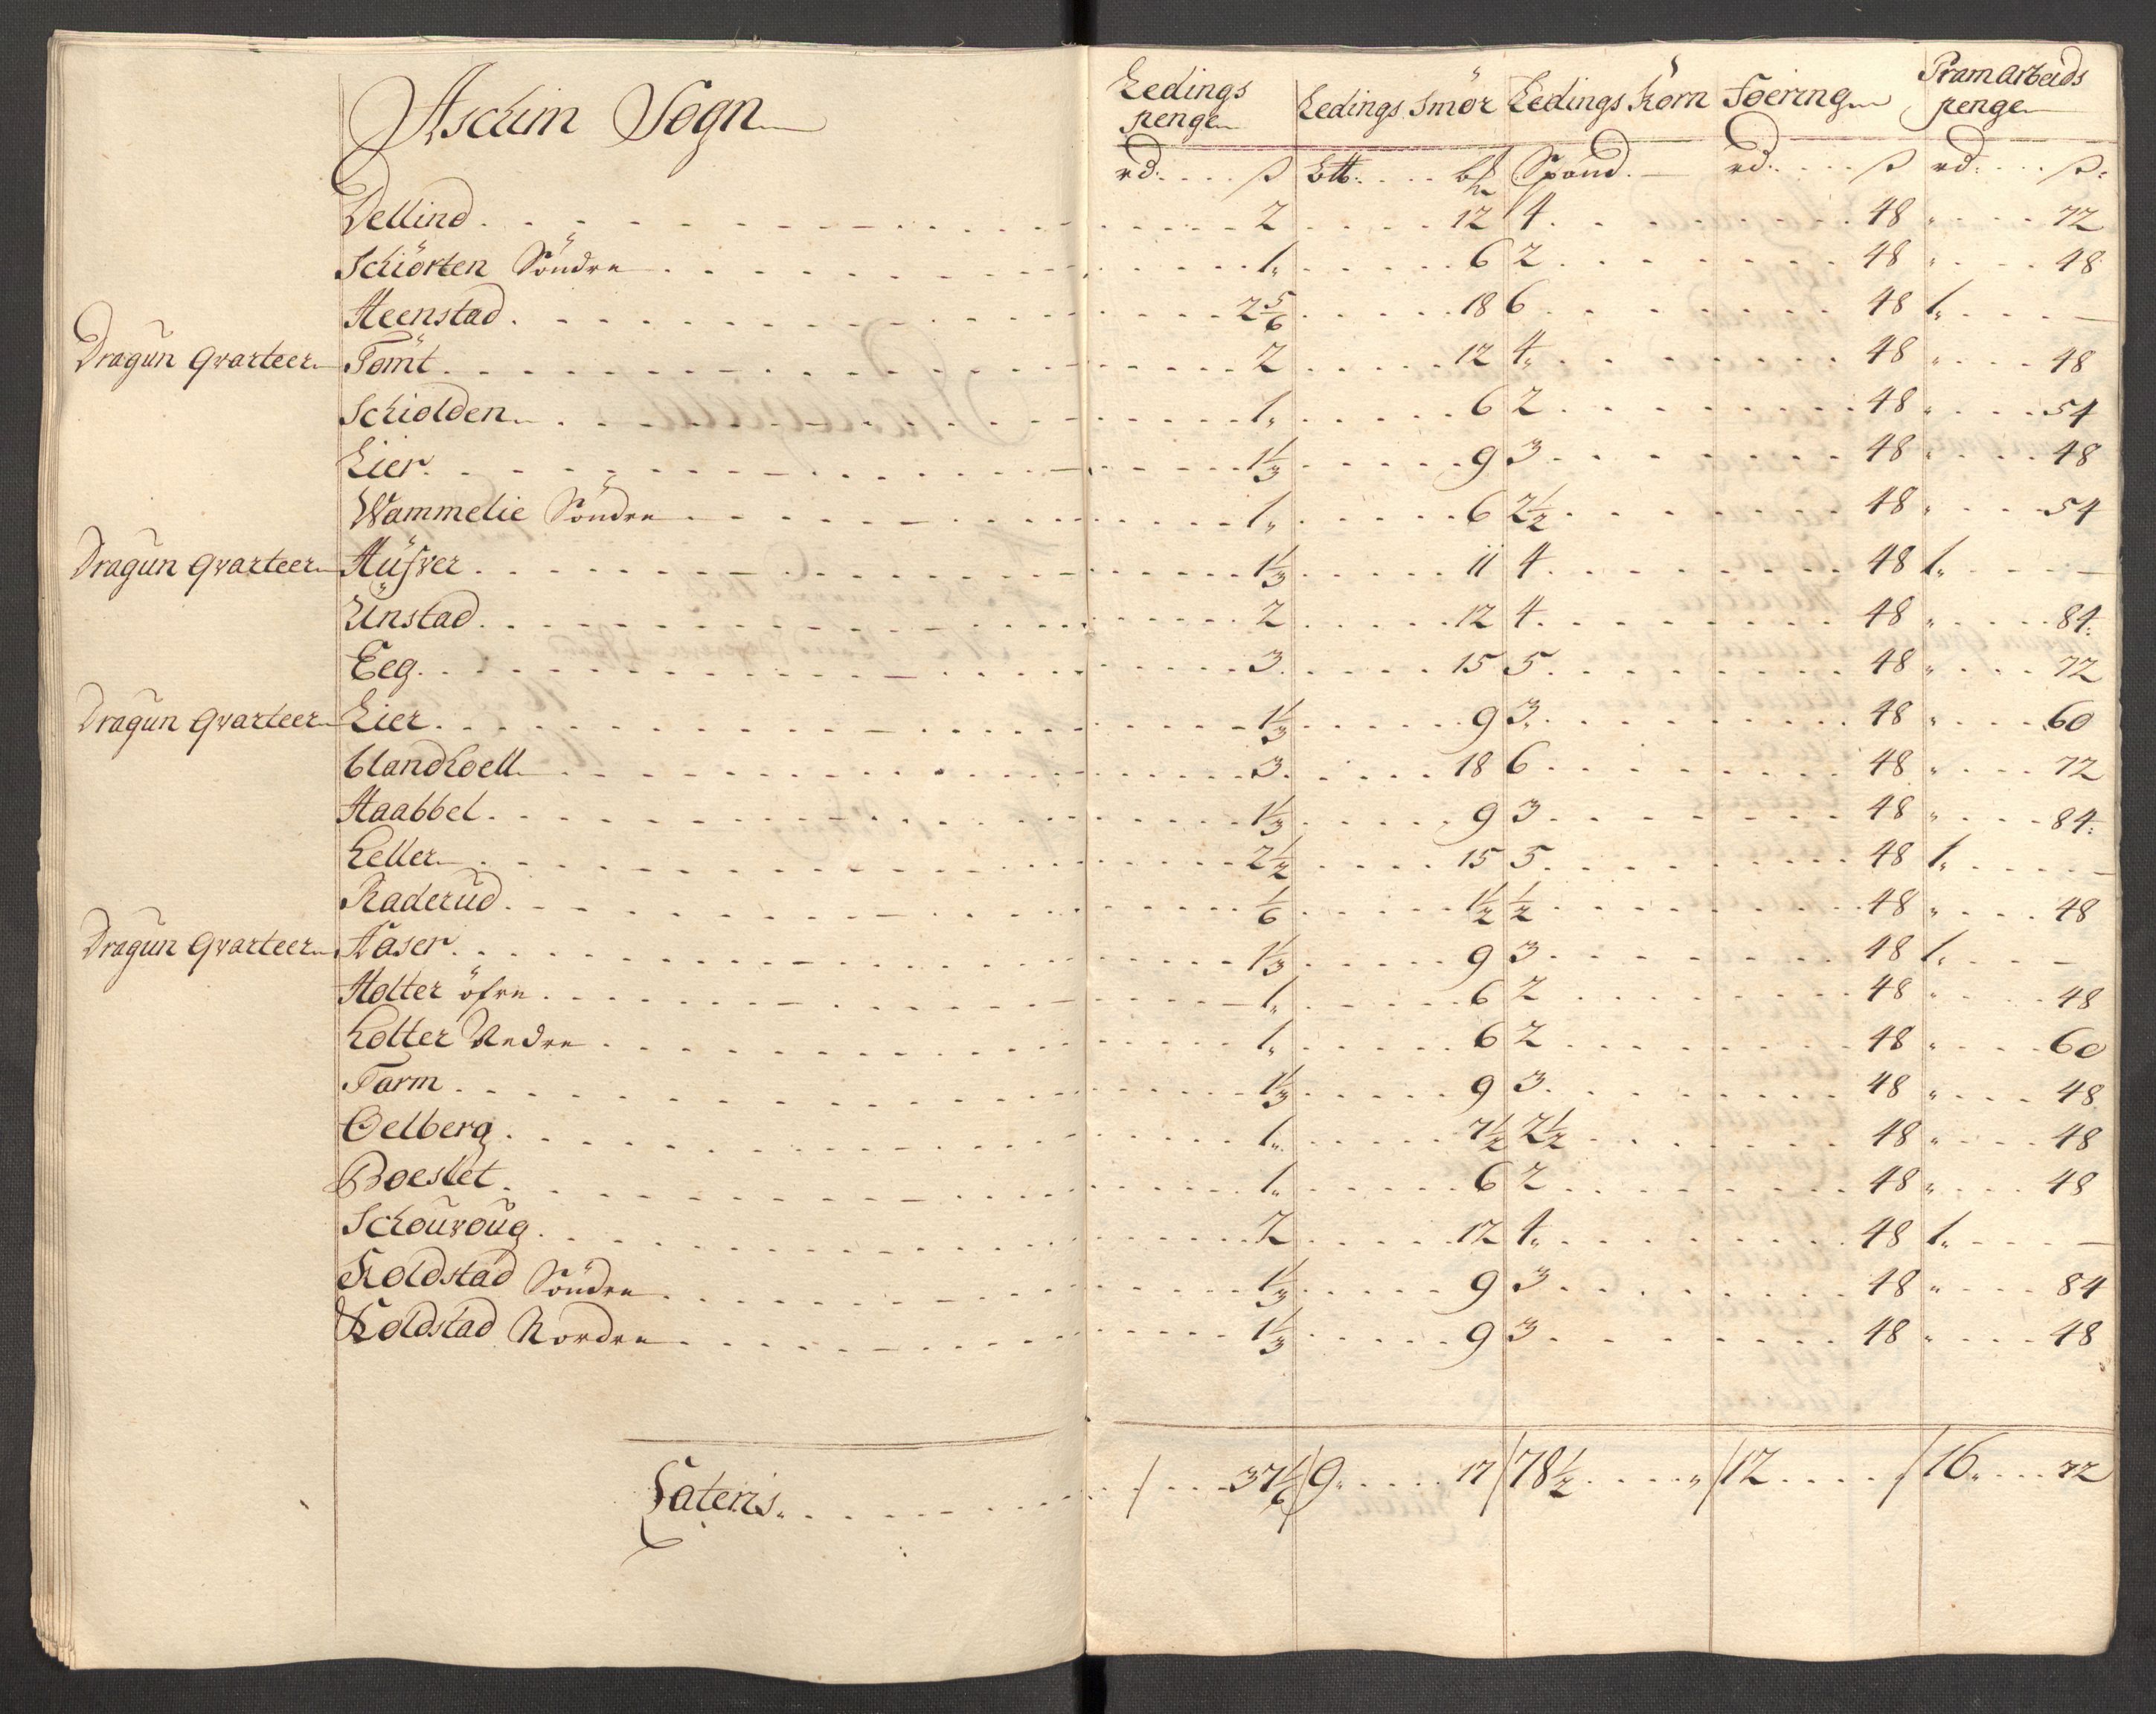 Aschim Sogn
Ledings penge | Ledings Smör | Ledings Korn | Foering | Pramarbeids penge
rd. ß | Ltt. | Spand. | rd. ß | rd. ß.
Dellind 2 12 4 48 " 72
Schiörten Söndre 1" 6 2 48 " 48
Heenstad 2 5/6 18 6 48 1" —
Dragun Qvarteer Tomt 2 12 4" 48 " 48
Schiolden 1" 6 2 48 " 54
Lier 1 1/3 9 3 48 " 48
Wammelie Söndre 1" 6 2 1/2 48 " 54
Dragun Qvarteer Hüfver 1 1/3 11 4 48 1" —
Unstad 2 12 4 48 " 84
Eeg 3 15 5 48 " 72
Dragun Qvarteer Lier 1 1/3 9 3 48 " 60
Glandhoell 3 18 6 48 " 72
Haabbel 1 1/3 9 3 48 " 84
Heller 2 1/2 15 5 48 1" —
Raderud 1/6 1 1/2 1/2 48 " 48
Dragun Qvarteer Haser 1 1/3 9 3 48 1" —
Holter öfre 1" 6 2 48 " 48
Holter Nedre 1" 6 2 48 " 60
Farm 1 1/3 9 3 48 " 48
Oelberg 1" 7 1/2 2 1/2 48 " 48
Boeslet 1" 6 2 48 " 48
Schouroug 2 12 4" 48 1" —
Koldstad Söndre 1 1/3 9 3 48 " 84
Koldstad Nordre 1 1/3 9 3 48 " 48
Lateris / 37 1/6 / 9" 17 / 78 1/2 " / 12 / 16" 72